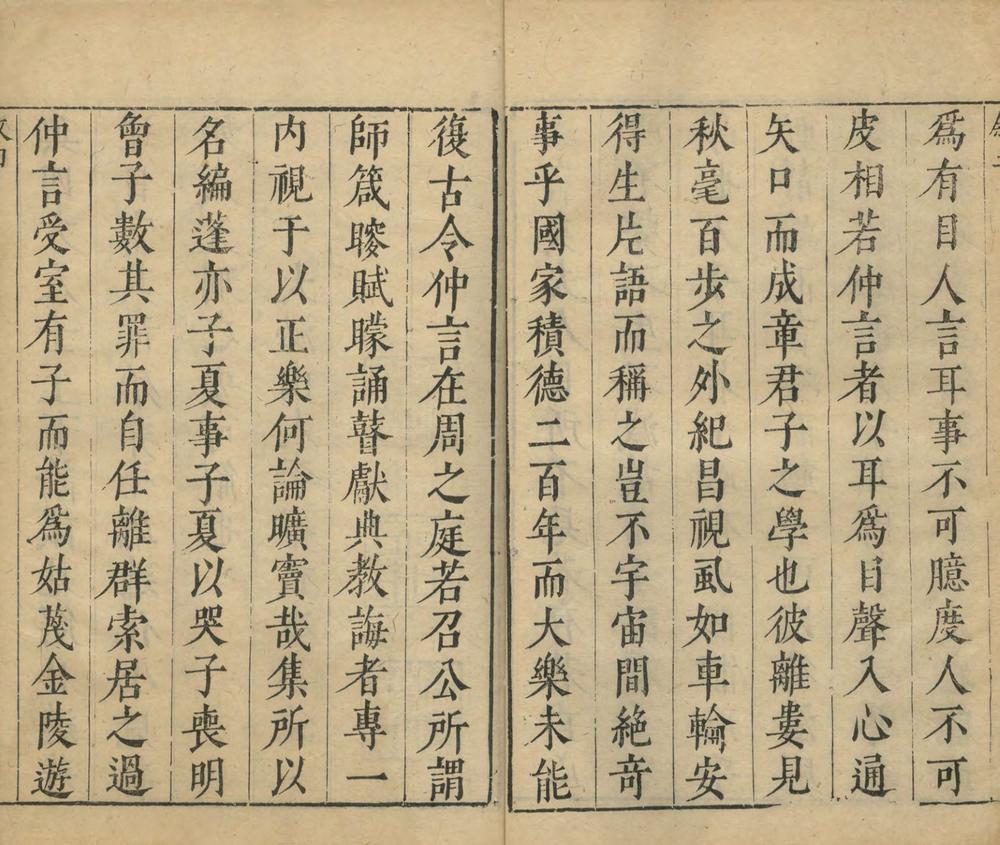 爲有目人言耳事不可臆度人不可
皮相若仲言者以耳爲目聲入心通
矢口而成章君子之學也彼離婁見
秋毫百步之外紀昌視虱如車輪安
得生片語而稱之豈不宇宙間絶奇
事乎國家積德二百年而大樂未能
復古令仲言在周之庭若召公所謂
師箴瞍賦矇誦瞽獻典教誨者專一
内視于以正樂何論曠竇哉集所以
名編蓬亦子夏事子夏以哭子喪明
曾子數其罪而自任離群索居之過
仲言受室有子而能爲姑蔑金陵遊